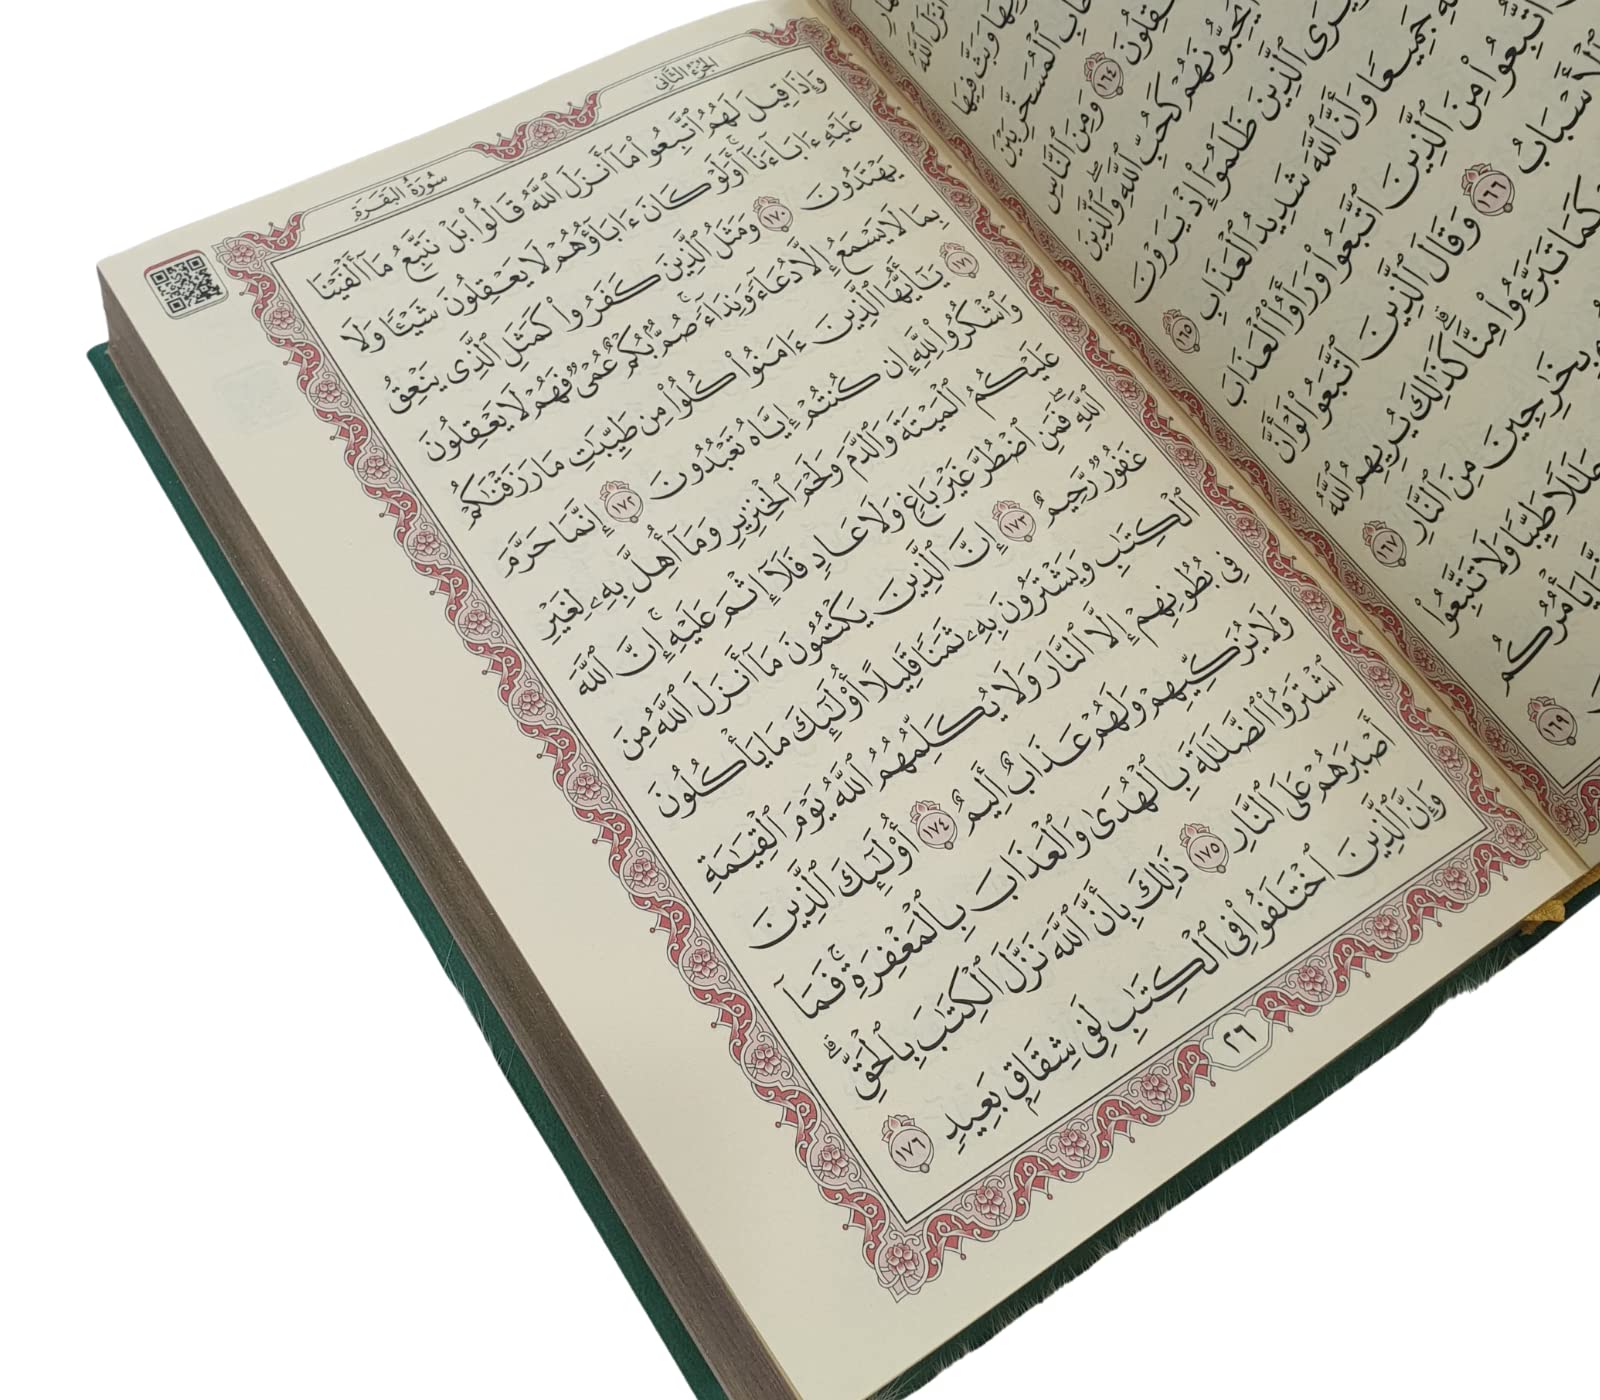 أَنزَلَ ٱللَّهُ
وَبَثَّ فِيهَا
ٱلْمُسَخَّرِ بَيْنَ
١٦٤ وَمِنَ ٱلنَّاسِ
يُحِبُّونَهُمْ كَحُبِّ ٱللَّهِ وَٱلَّذِينَ
يَرَى ٱلَّذِينَ ظَلَمُوٓا۟ إِذْ يَرَوْنَ
جَمِيعًا وَأَنَّ ٱللَّهَ شَدِيدُ ٱلْعَذَابِ ١٦٥
ٱتُّبِعُوا۟ مِنَ ٱلَّذِينَ ٱتَّبَعُوا۟ وَرَأَوُا۟ ٱلْعَذَابَ
ٱلْأَسْبَابُ ١٦٦ وَقَالَ ٱلَّذِينَ ٱتَّبَعُوا۟ لَوْ أَنَّ
كَمَا تَبَرَّءُوا۟ مِنَّا ۗ كَذَٰلِكَ يُرِيهِمُ ٱللَّهُ
بِخَٰرِجِينَ مِنَ ٱلنَّارِ ١٦٧
حَلَٰلًا طَيِّبًا وَلَا تَتَّبِعُوا۟
يَأْمُرُكُم
١٦٩
الجزء الثاني
سورة البقرة
وَإِذَا قِيلَ لَهُمُ ٱتَّبِعُوا۟ مَآ أَنزَلَ ٱللَّهُ قَالُوا۟ بَلْ نَتَّبِعُ مَآ أَلْفَيْنَا
عَلَيْهِ ءَابَآءَنَآ ۗ أَوَلَوْ كَانَ ءَابَآؤُهُمْ لَا يَعْقِلُونَ شَيْـًٔا وَلَا
يَهْتَدُونَ ١٧٠ وَمَثَلُ ٱلَّذِينَ كَفَرُوا۟ كَمَثَلِ ٱلَّذِى يَنْعِقُ
بِمَا لَا يَسْمَعُ إِلَّا دُعَآءً وَنِدَآءً ۚ صُمٌّۢ بُكْمٌ عُمْىٌ فَهُمْ لَا يَعْقِلُونَ
١٧١ يَٰٓأَيُّهَا ٱلَّذِينَ ءَامَنُوا۟ كُلُوا۟ مِن طَيِّبَٰتِ مَا رَزَقْنَٰكُمْ
وَٱشْكُرُوا۟ لِلَّهِ إِن كُنتُمْ إِيَّاهُ تَعْبُدُونَ ١٧٢ إِنَّمَا حَرَّمَ
عَلَيْكُمُ ٱلْمَيْتَةَ وَٱلدَّمَ وَلَحْمَ ٱلْخِنزِيرِ وَمَآ أُهِلَّ بِهِۦ لِغَيْرِ
ٱللَّهِ ۖ فَمَنِ ٱضْطُرَّ غَيْرَ بَاغٍ وَلَا عَادٍ فَلَآ إِثْمَ عَلَيْهِ ۚ إِنَّ ٱللَّهَ
غَفُورٌ رَّحِيمٌ ١٧٣ إِنَّ ٱلَّذِينَ يَكْتُمُونَ مَآ أَنزَلَ ٱللَّهُ مِنَ
ٱلْكِتَٰبِ وَيَشْتَرُونَ بِهِۦ ثَمَنًا قَلِيلًا أُو۟لَٰٓئِكَ مَا يَأْكُلُونَ
فِى بُطُونِهِمْ إِلَّا ٱلنَّارَ وَلَا يُكَلِّمُهُمُ ٱللَّهُ يَوْمَ ٱلْقِيَٰمَةِ
وَلَا يُزَكِّيهِمْ وَلَهُمْ عَذَابٌ أَلِيمٌ ١٧٤ أُو۟لَٰٓئِكَ ٱلَّذِينَ
ٱشْتَرَوُا۟ ٱلضَّلَٰلَةَ بِٱلْهُدَىٰ وَٱلْعَذَابَ بِٱلْمَغْفِرَةِ ۚ فَمَآ
أَصْبَرَهُمْ عَلَى ٱلنَّارِ ١٧٥ ذَٰلِكَ بِأَنَّ ٱللَّهَ نَزَّلَ ٱلْكِتَٰبَ بِٱلْحَقِّ ۗ
وَإِنَّ ٱلَّذِينَ ٱخْتَلَفُوا۟ فِى ٱلْكِتَٰبِ لَفِى شِقَاقٍۭ بَعِيدٍ ١٧٦
٢٦